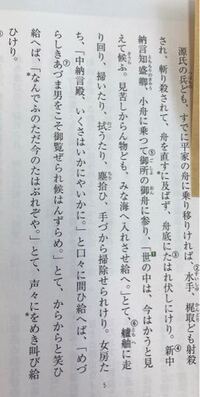 源氏の兵ども、すでに平家の舟に乗り移りければ、水手、梶取ども射殺
され、斬り殺されて、舟を直すに及ばず、舟底にたはれ伏しにけり。新中
納言知盛卿、小舟に乗つて御所の御舟に参り、「世の中は、今はかうと見
えて候ふ。見苦しからん物ども、みな海へ入れさせ給へ。」とて、艫舳に走
り回り、掃いたり、拭うたり、塵拾ひ、手づから掃除せられけり。女房た
ち、「中納言殿、いくさはいかにやいかに。」と口々に問ひ給へば、「めづ
らしきあづま男をこそ御覧ぜられ候はんずらめ。」とて、からからと笑ひ
給へば、「なんでふのただ今のたはぶれぞや。」とて、声々にをめき叫び給
ひけり。
5